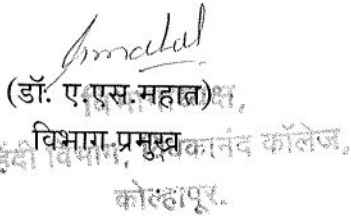 (डॉ. ए.एस.महात)
विभागाध्यक्ष,
विभाग प्रमुख
हिंदी विभाग, विवेकानंद कॉलेज,
कोल्हापूर.